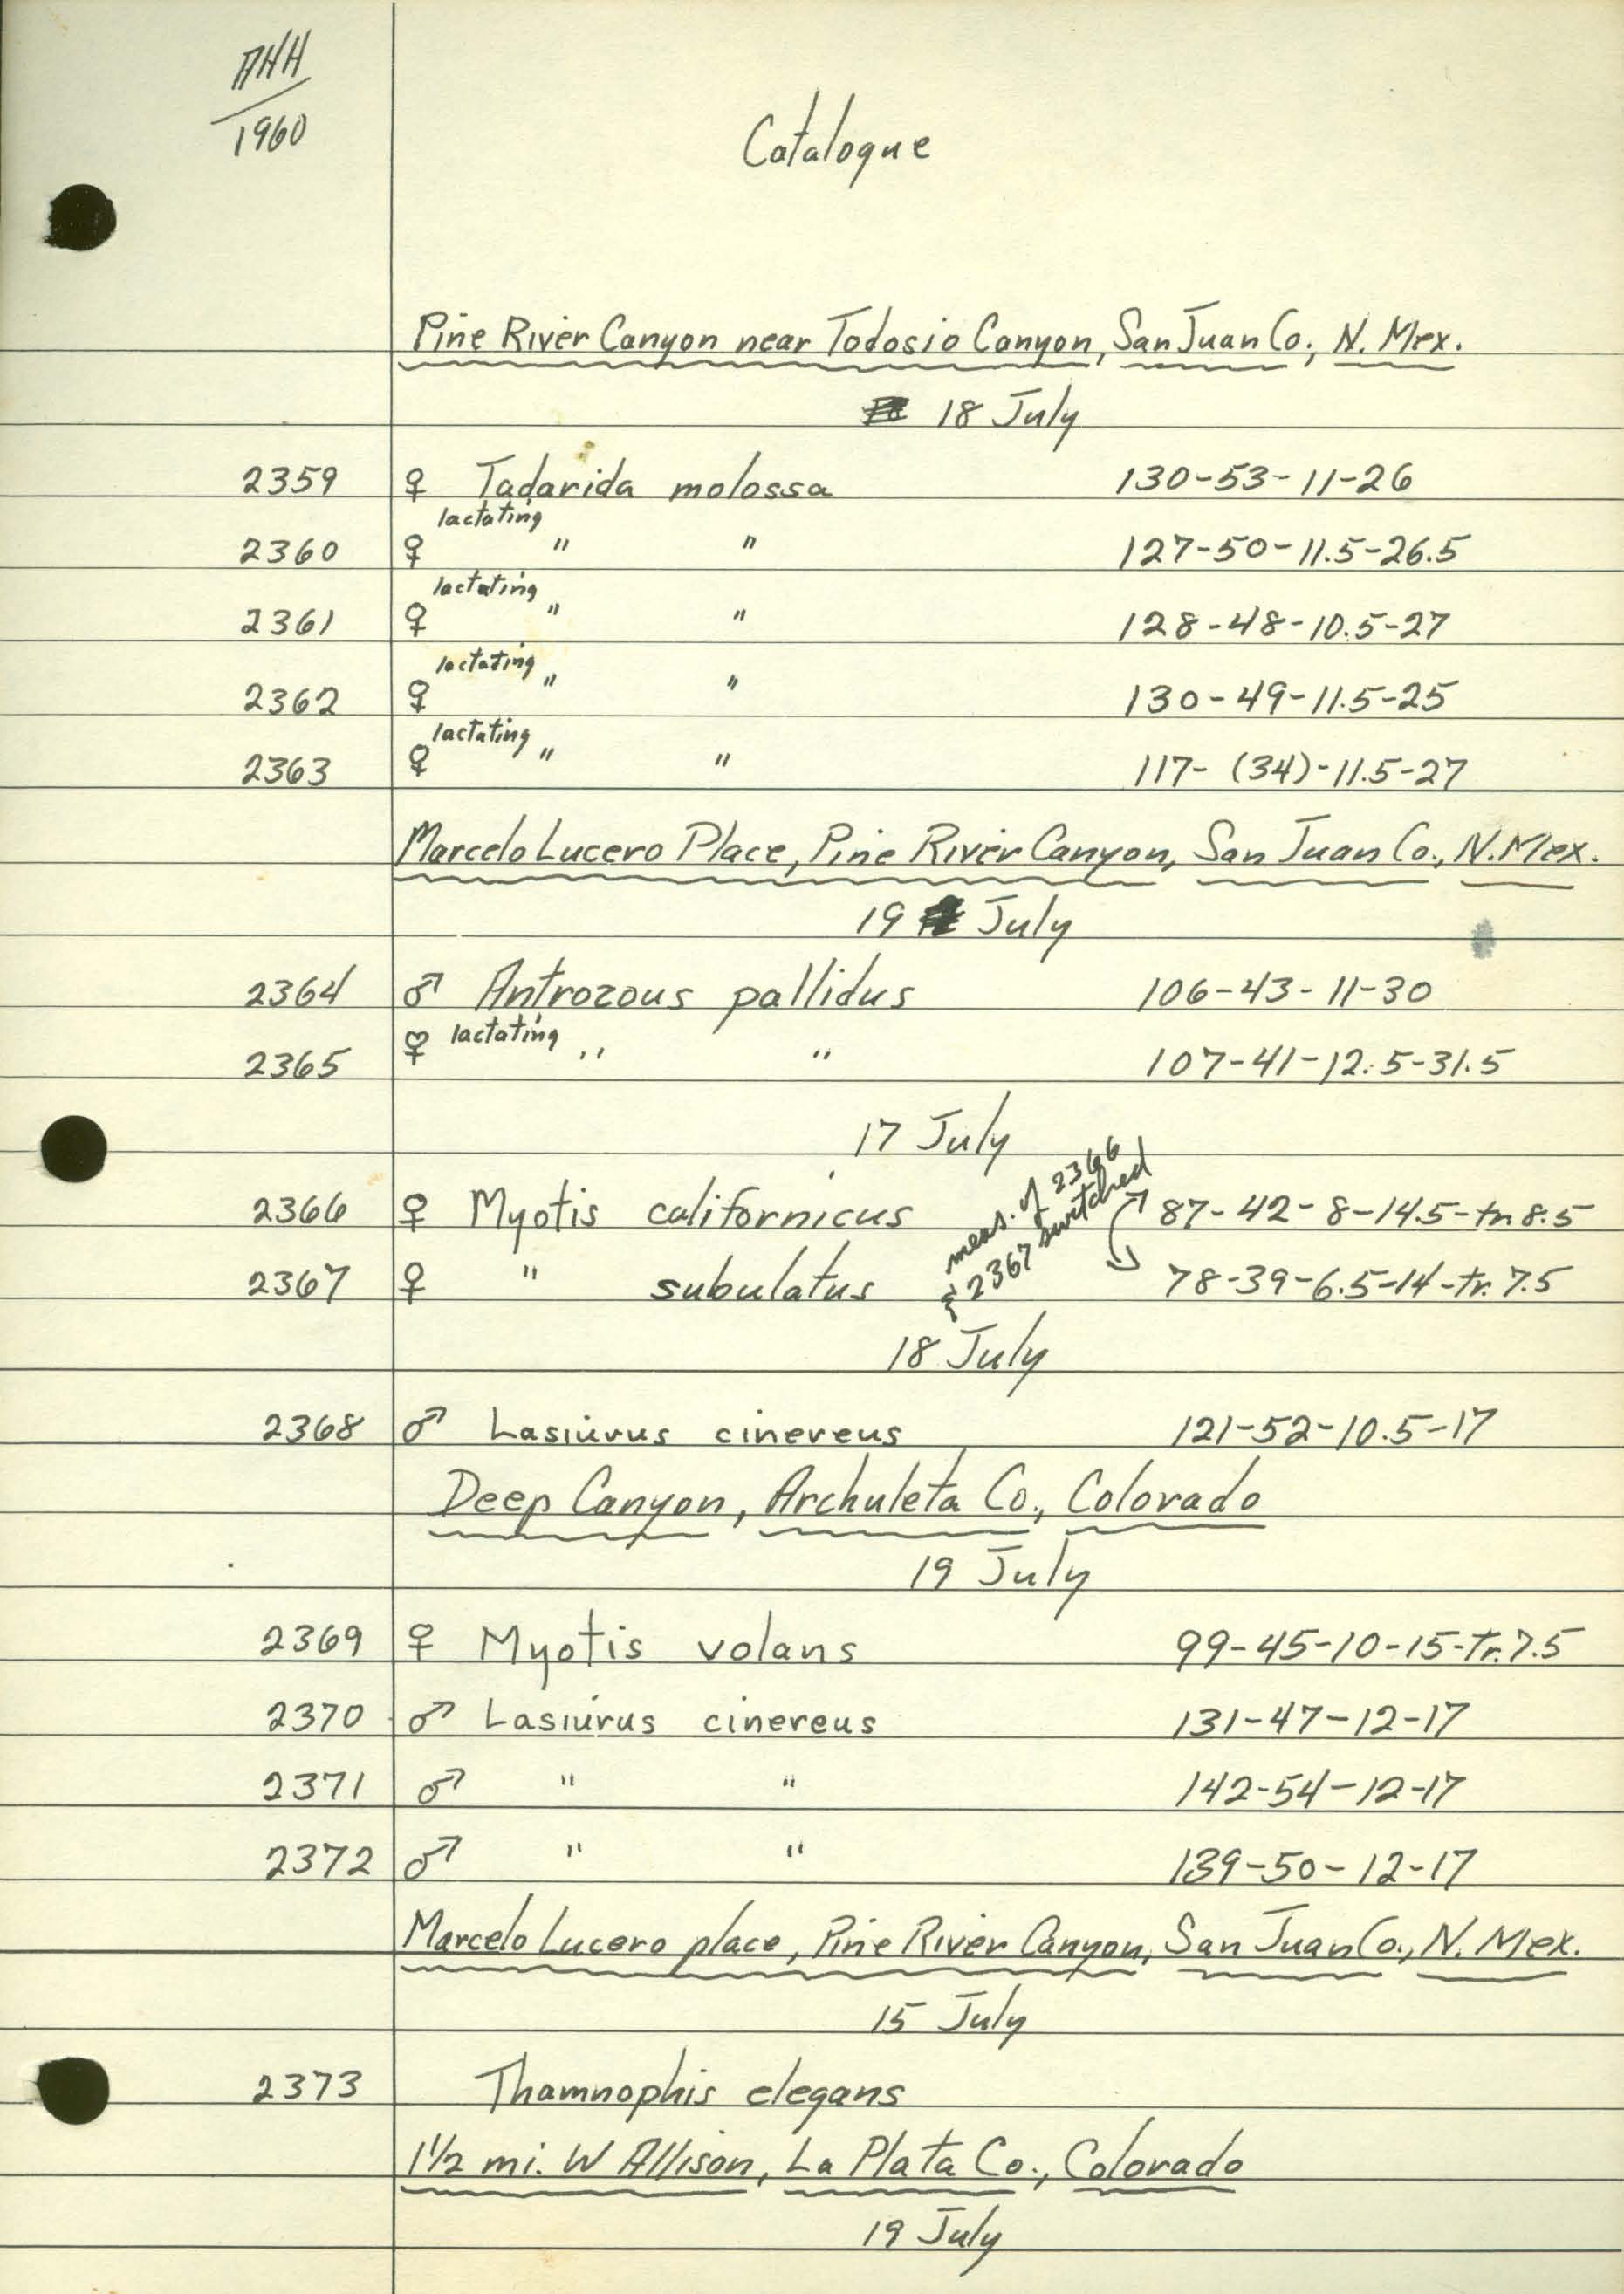 AHH
1960
Catalogue
Pine River Canyon near Todosio Canyon, San Juan Co., N. Mex.
18 July
2359 ♀ Tadarida molossa 130-53-11-26
lactating
2360 ♀ " " 127-50-11.5-26.5
lactating
2361 ♀ " " 128-48-10.5-27
lactating
2362 ♀ " " 130-49-11.5-25
lactating
2363 ♀ " " 117-(34)-11.5-27
Marcelo Lucero Place, Pine River Canyon, San Juan Co., N. Mex.
19 July
2364 ♂ Antrozous pallidus 106-43-11-30
2365 ♀ lactating " " 107-41-12.5-31.5
17 July
2366 ♀ Myotis californicus 87-42-8-14.5-tr. 8.5
meas. of 2366
& 2367 switched
2367 ♀ " subulatus 78-39-6.5-14-tr. 7.5
18 July
2368 ♂ Lasiurus cinereus 121-52-10.5-17
Deep Canyon, Archuleta Co., Colorado
19 July
2369 ♀ Myotis volans 99-45-10-15-tr. 7.5
2370 ♂ Lasiurus cinereus 131-47-12-17
2371 ♂ " " 142-54-12-17
2372 ♂ " " 139-50-12-17
Marcelo Lucero place, Pine River Canyon, San Juan Co., N. Mex.
15 July
2373 Thamnophis elegans
1½ mi. W Allison, La Plata Co., Colorado
19 July